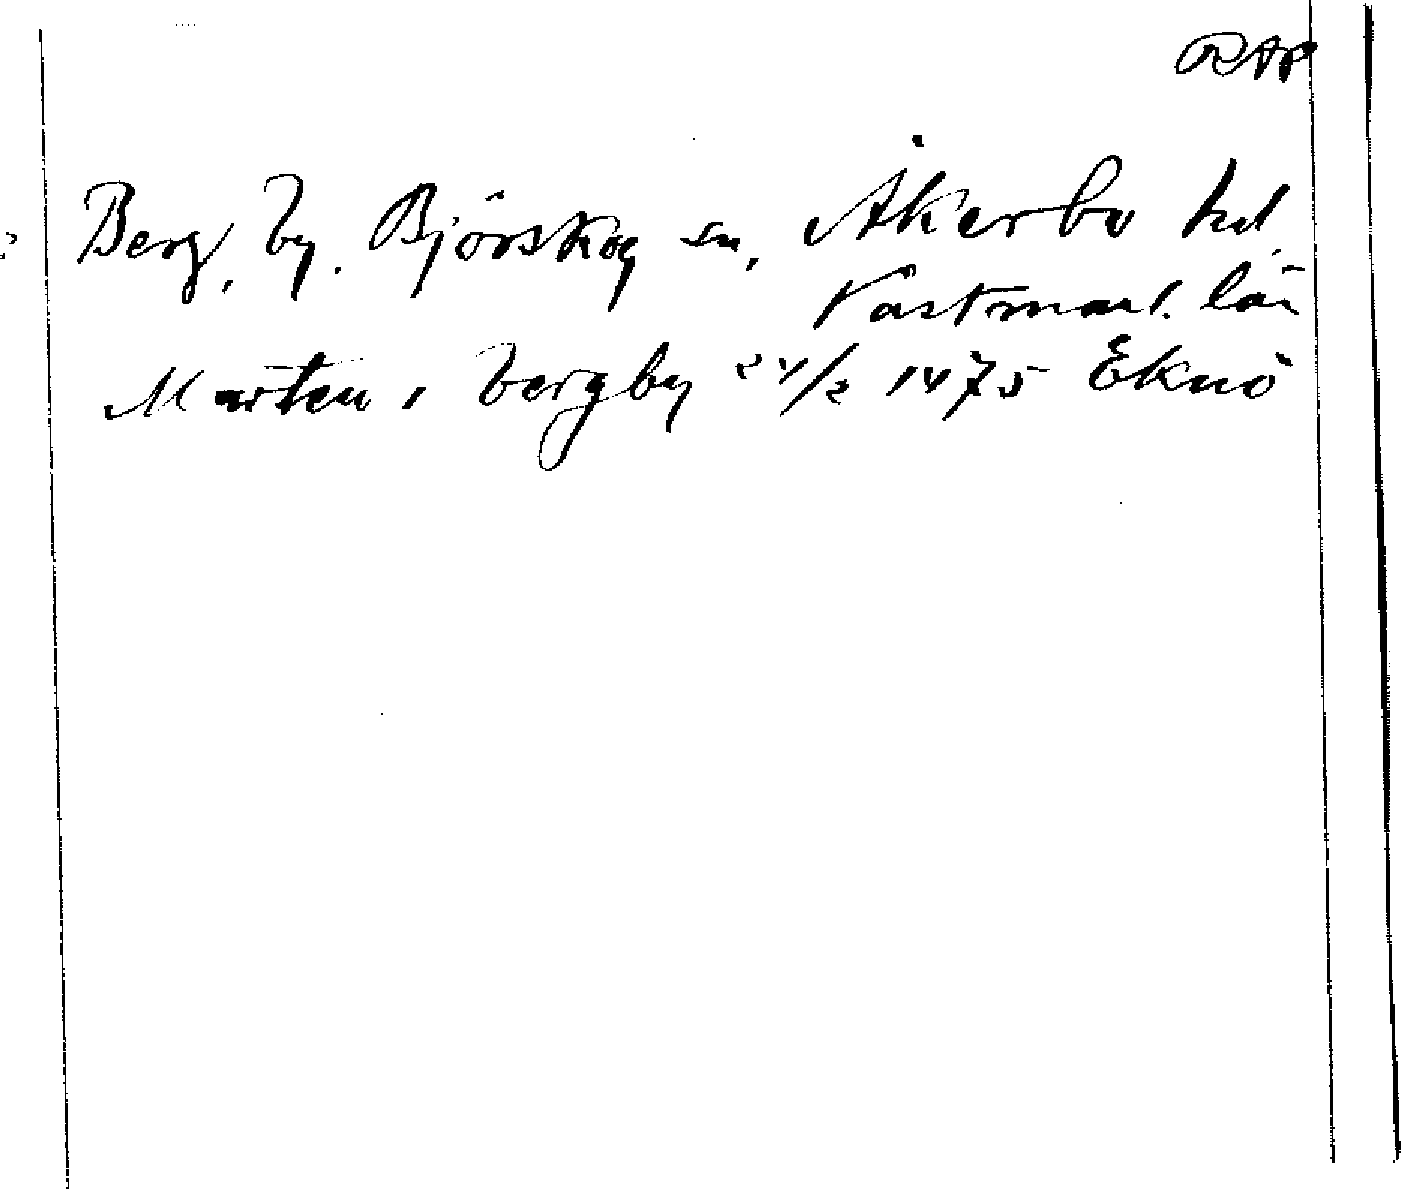 RAP
Berg, by. Björskog sn, Åkerbo hd.
Västmanl. län
Marten i bergby 24/2 1475 Eknö